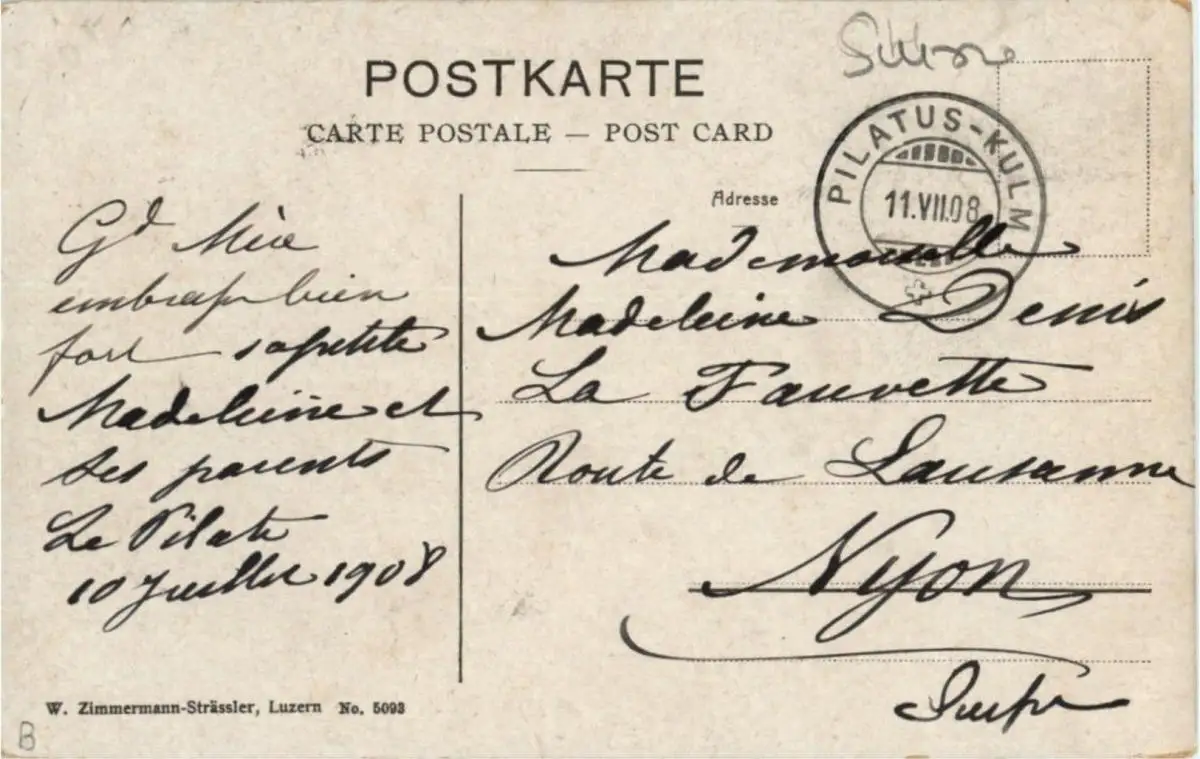 POSTKARTE
CARTE POSTALE — POST CARD
Adresse
PILATUS-KULM
11.VII.08
Gd Mère
embrasse bien
fort sa petite
Madeleine et
ses parents
Le Pilate
10 Juillet 1908
Mademoiselle
Madeleine Denis
La Fauvette
Route de Lausanne
Nyon
Suisse
W. Zimmermann-Strässler, Luzern No. 5093
B